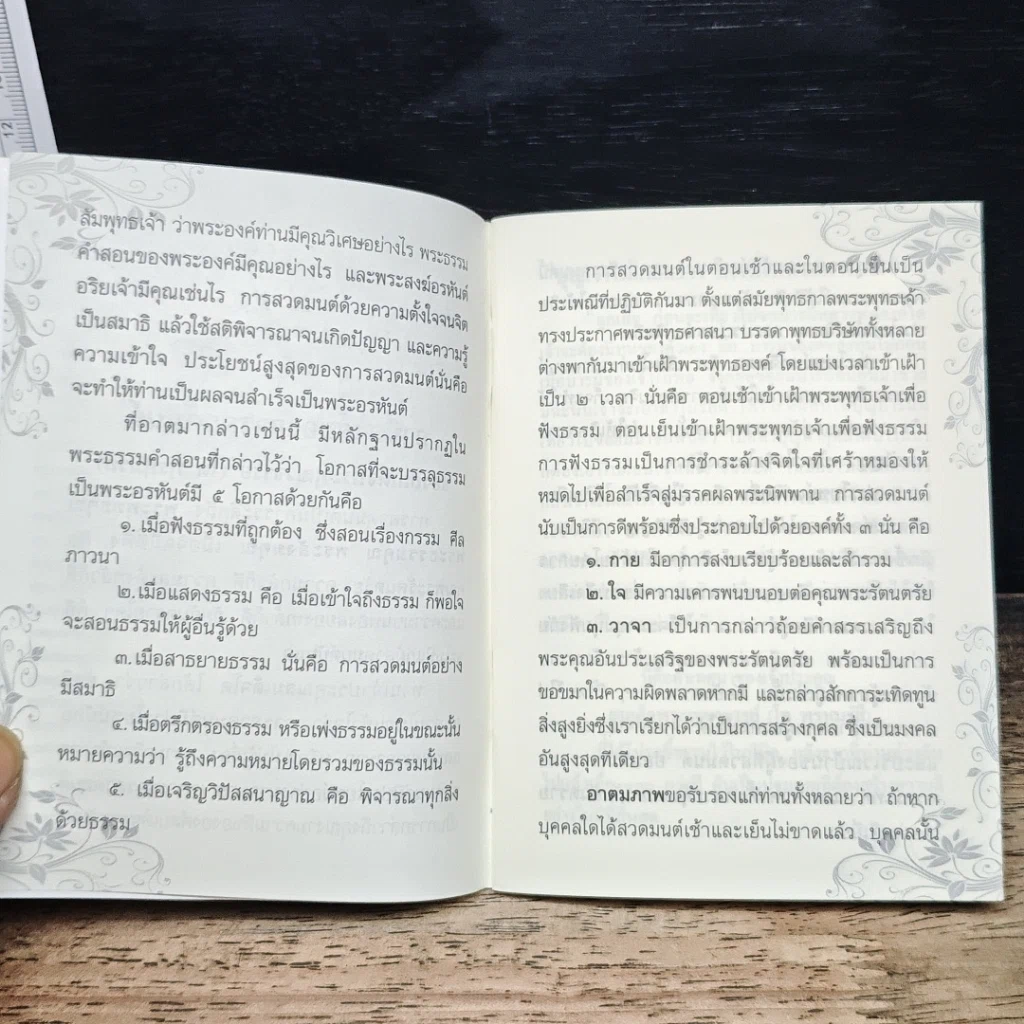 สัมพุทธเจ้า ว่าพระองค์ท่านมีคุณวิเศษอย่างไร พระธรรม
คำสอนของพระองค์มีคุณอย่างไร และพระสงฆ์อรหันต์
อริยเจ้ามีคุณเช่นไร การสวดมนต์ด้วยความตั้งใจจนจิต
เป็นสมาธิ แล้วใช้สติพิจารณาจนเกิดปัญญา และความรู้
ความเข้าใจ ประโยชน์สูงสุดของการสวดมนต์นั่นคือ
จะทำให้ท่านเป็นผลจนสำเร็จเป็นพระอรหันต์
ที่อาตมากล่าวเช่นนี้ มีหลักฐานปรากฏใน
พระธรรมคำสอนที่กล่าวไว้ว่า โอกาสที่จะบรรลุธรรม
เป็นพระอรหันต์มี ๕ โอกาสด้วยกันคือ
๑. เมื่อฟังธรรมที่ถูกต้อง ซึ่งสอนเรื่องกรรม ศีล
ภาวนา
๒. เมื่อแสดงธรรม คือ เมื่อเข้าใจถึงธรรม ก็พอใจ
จะสอนธรรมให้ผู้อื่นรู้ด้วย
๓. เมื่อสาธยายธรรม นั่นคือ การสวดมนต์อย่าง
มีสมาธิ
๔. เมื่อตรึกตรองธรรม หรือเพ่งธรรมอยู่ในขณะนั้น
หมายความว่า รู้ถึงความหมายโดยรวมของธรรมนั้น
๕. เมื่อเจริญวิปัสสนาญาณ คือ พิจารณาทุกสิ่ง
ด้วยธรรม
การสวดมนต์ในตอนเช้าและในตอนเย็นเป็น
ประเพณีที่ปฏิบัติกันมา ตั้งแต่สมัยพุทธกาลพระพุทธเจ้า
ทรงประกาศพระพุทธศาสนา บรรดาพุทธบริษัททั้งหลาย
ต่างพากันมาเข้าเฝ้าพระพุทธองค์ โดยแบ่งเวลาเข้าเฝ้า
เป็น ๒ เวลา นั่นคือ ตอนเช้าเข้าเฝ้าพระพุทธเจ้าเพื่อ
ฟังธรรม ตอนเย็นเข้าเฝ้าพระพุทธเจ้าเพื่อฟังธรรม
การฟังธรรมเป็นการชำระล้างจิตใจที่เศร้าหมองให้
หมดไปเพื่อสำเร็จสู่มรรคผลพระนิพพาน การสวดมนต์
นับเป็นการดีพร้อมซึ่งประกอบไปด้วยองค์ทั้ง ๓ นั่น คือ
๑. กาย มีอาการสงบเรียบร้อยและสำรวม
๒. ใจ มีความเคารพนบนอบต่อคุณพระรัตนตรัย
๓. วาจา เป็นการกล่าวถ้อยคำสรรเสริญถึง
พระคุณอันประเสริฐของพระรัตนตรัย พร้อมเป็นการ
ขอขมาในความผิดพลาดหากมี และกล่าวสักการะเทิดทูน
สิ่งสูงยิ่งซึ่งเราเรียกได้ว่าเป็นการสร้างกุศล ซึ่งเป็นมงคล
อันสูงสุดทีเดียว
อาตมภาพขอรับรองแก่ท่านทั้งหลายว่า ถ้าหาก
บุคคลใดได้สวดมนต์เช้าและเย็นไม่ขาดแล้ว บุคคลนั้น
12